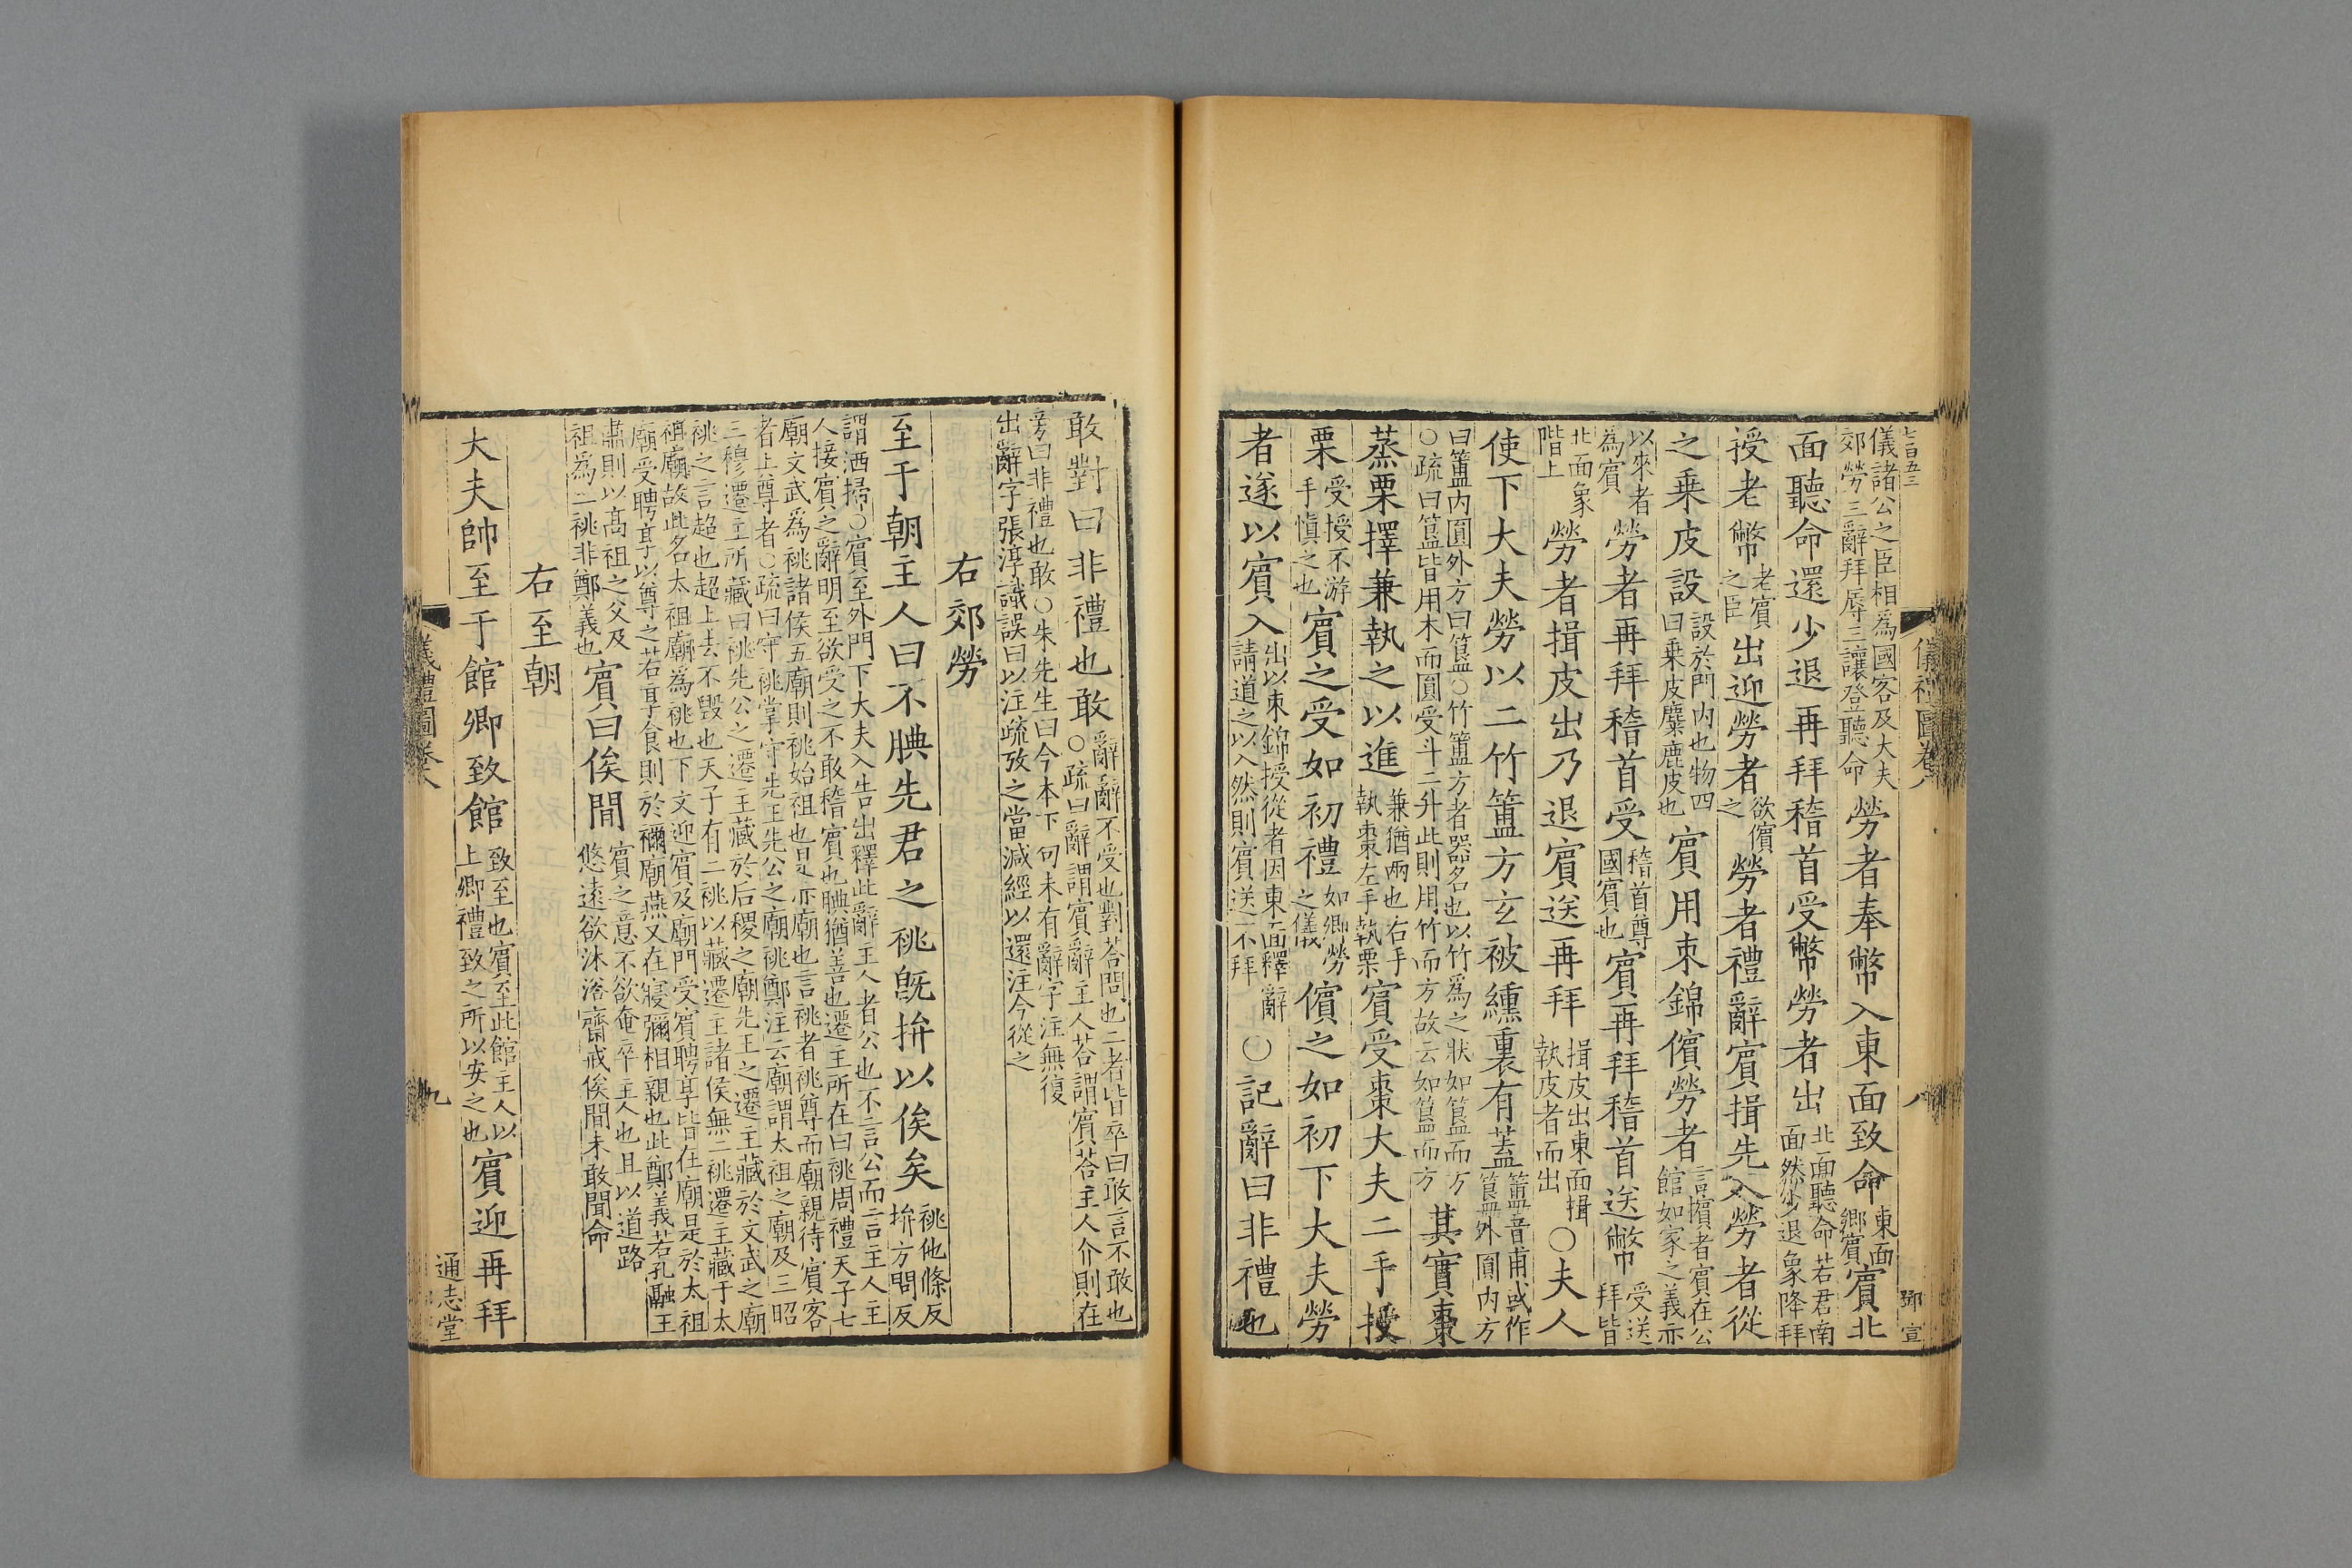 七百五三
儀諸公之臣相爲國客及大夫
郊勞三辭拜辱三讓登聽命
勞者奉幣入東面致命
東面
鄉賓
賓北
面聽命還少退再拜稽首受幣勞者出
北面聽命若君南
面然少退象降拜
授老幣
老賓
之臣
出迎勞者
欲儐
之
勞者禮辭賓揖先入勞者從
之乗皮設
設於門内也物四
曰乗皮麋鹿皮也
賓用束錦儐勞者
言儐者賓在公
館如家之義亦
以來者
為賓
勞者再拜稽首受
稽首尊
國賓也
賓再拜稽首送幣
受送
拜皆
北面象
階上
勞者揖皮出乃退賓送再拜
揖皮出東面揖
執皮者而出
○夫人
使下大夫勞以二竹簠方玄被纁裏有蓋
簠音甫或作
簋外圓内方
曰簠内圓外方曰簋○竹簠方者器名也以竹爲之狀如簋而方
○疏曰簋皆用木而圓受斗二升此則用竹而方故云如簋而方
其實棗
蒸栗擇兼執之以進
兼猶兩也右手
執棗左手執栗
賓受棗大夫二手授
栗
受授不游
手愼之也
賓之受如初禮
如卿勞
之儀
儐之如初下大夫勞
者遂以賓入
出以束錦授從者因東面釋辭
請道之以入然則賓送不拜
○記辭曰非禮也
儀禮圖卷八
八
鄧宣
敢對曰非禮也敢
辭辭不受也對荅問也二者皆卒曰敢言不敢也
○疏曰辭謂賓辭主人荅謂賓荅主人介則在
旁曰非禮也敢○朱先生曰今本下句未有辭字注無復
出辭字張淳識誤曰以注疏攷之當減經以還注今從之
右郊勞
至于朝主人曰不腆先君之祧旣拚以俟矣
祧他條反
拚方問反
謂洒掃○賓至外門下大夫入告出釋此辭主人者公也不言公而言主人主
人接賓之辭明至欲受之不敢稽賓也腆猶善也遷主所在曰祧周禮天子七
廟文武爲祧諸侯五廟則祧始祖也是亦廟也言祧者祧尊而廟親待賓客
者上尊者○疏曰守祧掌守先王先公之廟祧鄭注云廟謂太祖之廟及三昭
三穆遷主所藏曰祧先公之遷主藏於后稷之廟先王之遷主藏於文武之廟
祧之言超也超上去不毀也天子有二祧以藏遷主諸侯無二祧遷主藏于太
祖廟故此名太祖廟爲祧也下文迎賓及廟門受賓聘享皆在廟是於太祖
廟受聘享以尊之若享食則於禰廟燕又在寢彌相親也此鄭義若孔融王
肅則以高祖之父及
祖爲二祧非鄭義也
賓曰俟閒
賓之意不欲奄卒主人也且以道路
悠遠欲沐浴齋戒俟閒未敢聞命
右至朝
大夫帥至于館卿致館
致至也賓至此館主人以
上卿禮致之所以安之也
賓迎再拜
儀禮圖卷八
九
通志堂